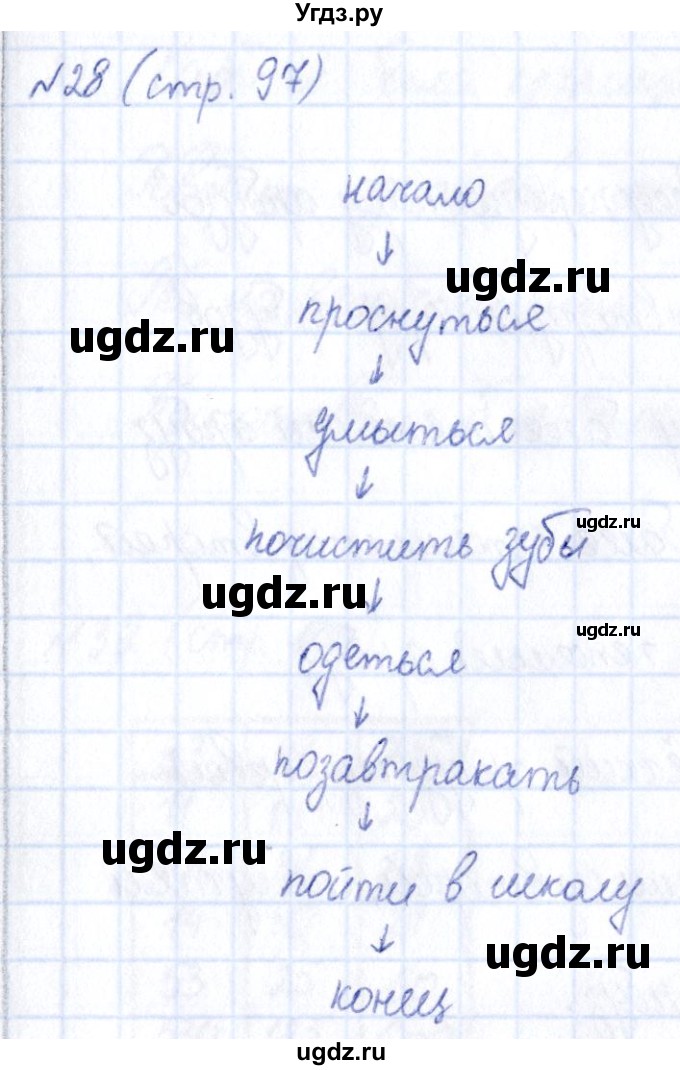 Угдз.ру
№28 (стр. 97)
начало
↓
ugdz.ru
проснуться
ugdz.ru
↓
умыться
↓
ugdz.ru
почистить зубы
ugdz.ru
↓
ugdz.ru
одеться
↓
позавтракать
↓
ugdz.ru
пойти в школу
↓
ugdz.ru
конец
ugdz.ru